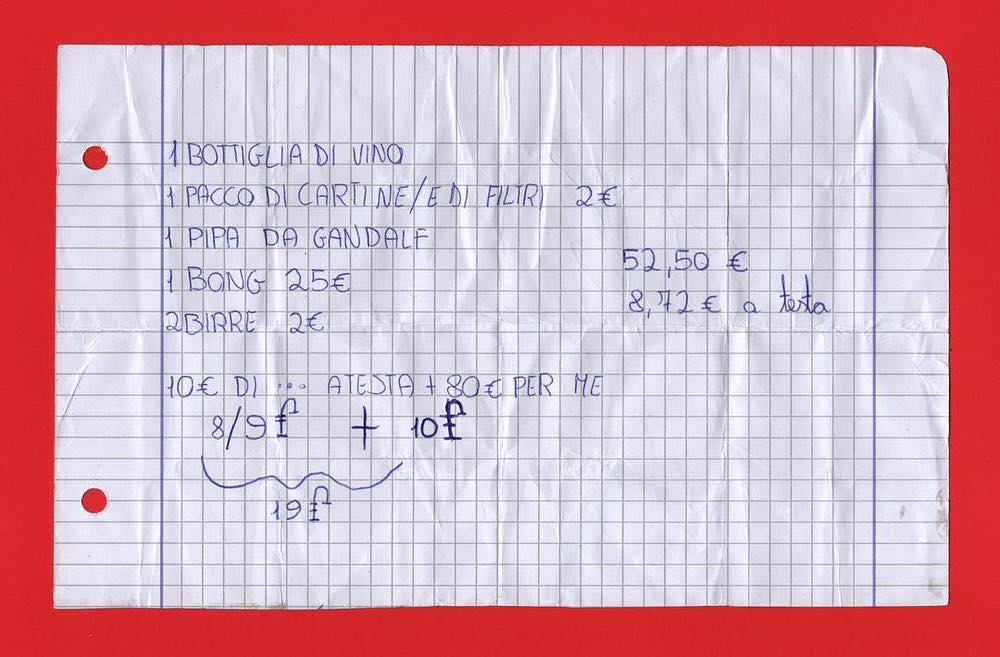 1 BOTTIGLIA DI VINO
1 PACCO DI CARTINE/E DI FILTRI 2€
1 PIPA DA GANDALF
1 BONG 25€
2 BIRRE 2€
52,50 €
8,72 € a testa
10€ DI ... A TESTA + 80€ PER ME
8/9 £ + 10 £
19 £